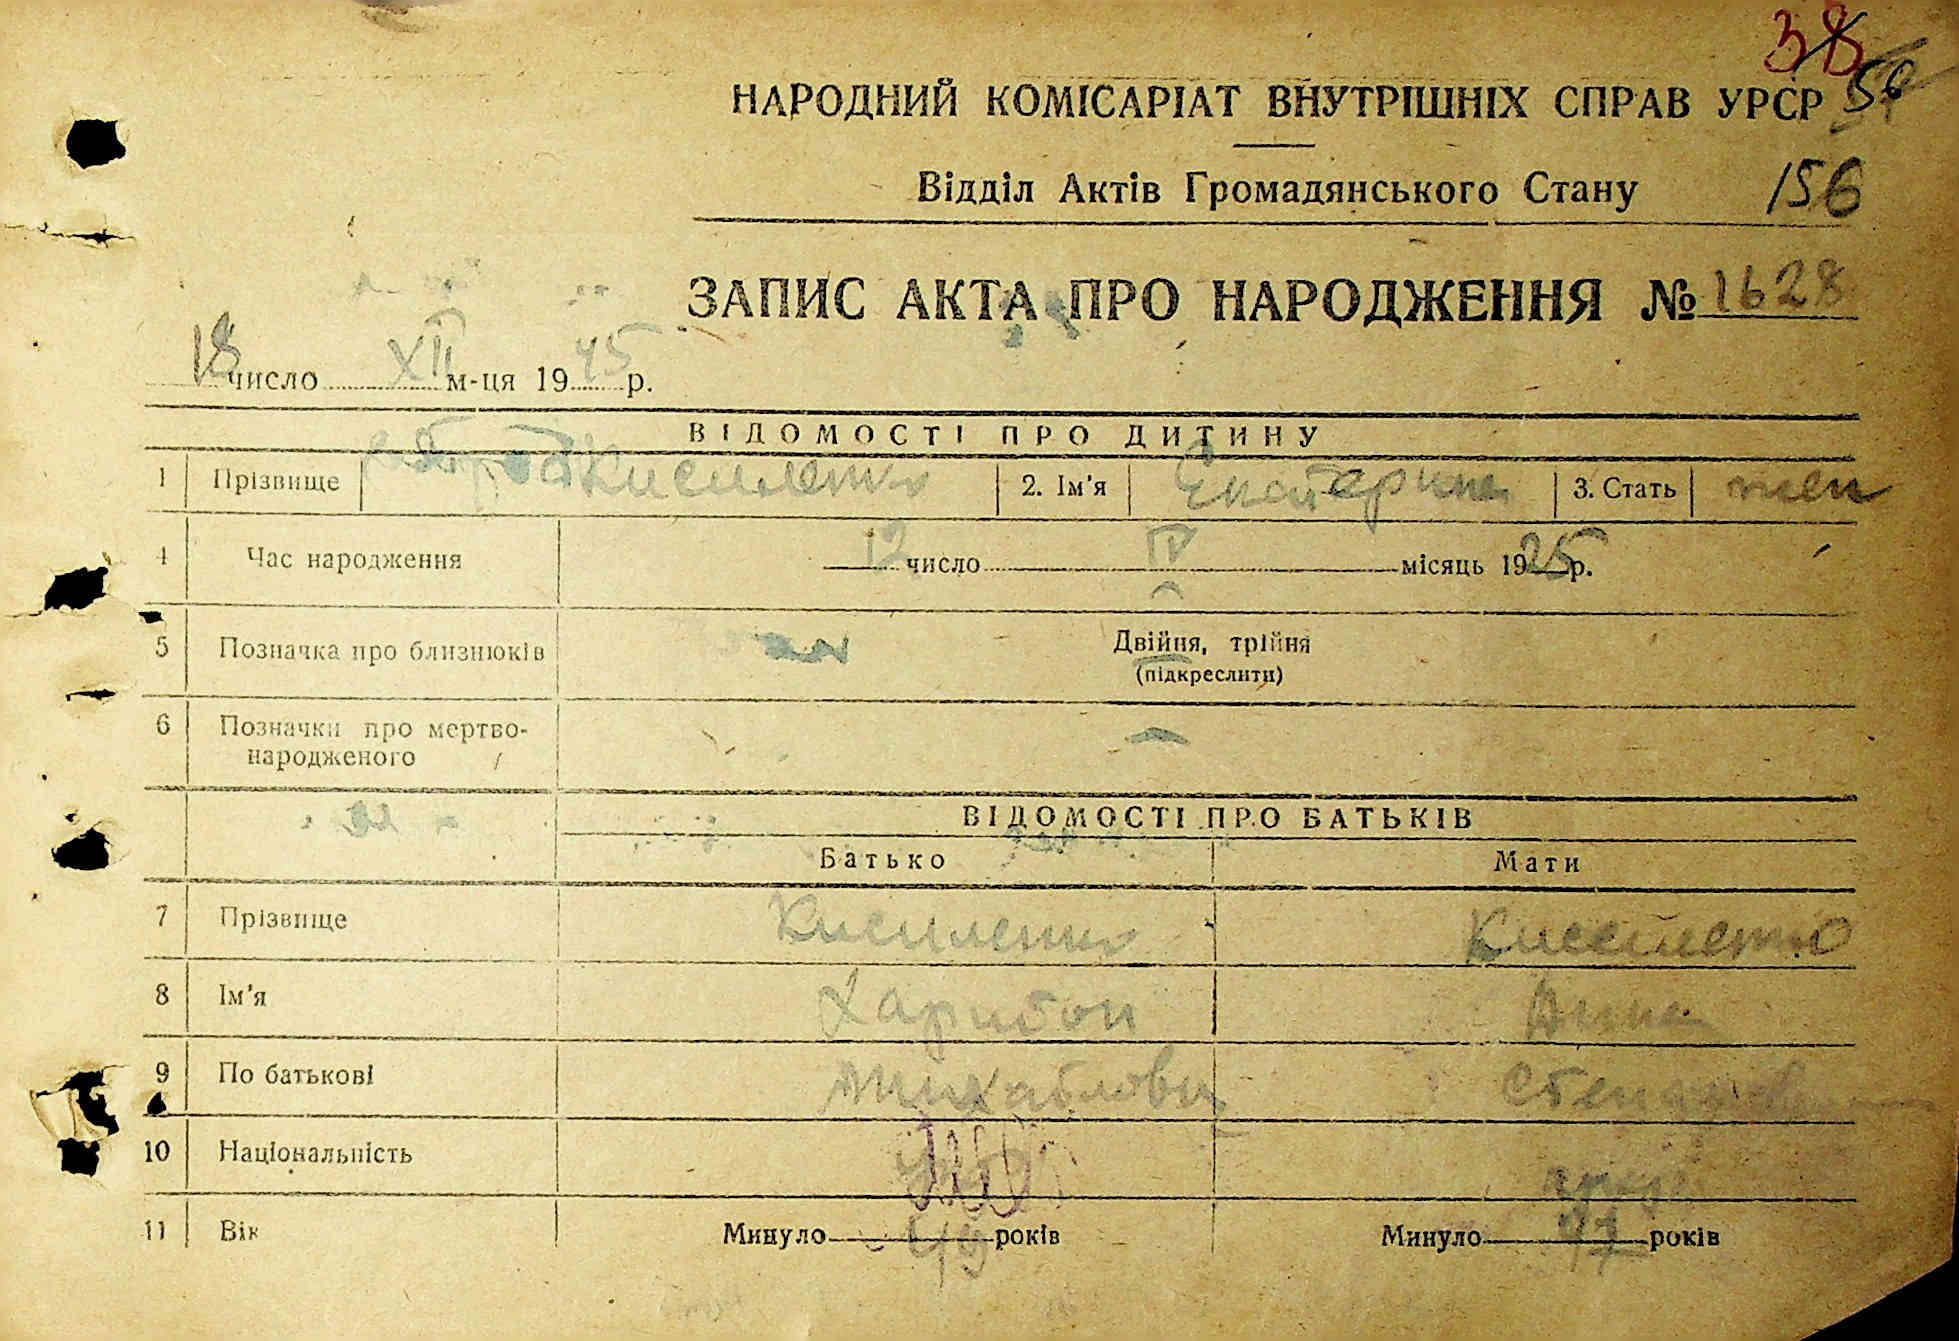 38
56
НАРОДНИЙ КОМІСАРІАТ ВНУТРІШНІХ СПРАВ УРСР
Відділ Актів Громадянського Стану
156
ЗАПИС АКТА ПРО НАРОДЖЕННЯ № 1628
18 число XII м-ця 1945 р.
ВІДОМОСТІ ПРО ДИТИНУ
1 Прізвище 2. Ім'я Екатерина 3. Стать жен
4 Час народження 12 число IV місяць 1925 р.
5 Позначка про близнюків Двійня, трійня
(підкреслити)
6 Позначки про мертво-
народженого
ВІДОМОСТІ ПРО БАТЬКІВ
Батько Мати
7 Прізвище
8 Ім'я Харитон Анна
9 По батькові Михайлович
10 Національність
11 Вік Минуло 49 років Минуло 47 років